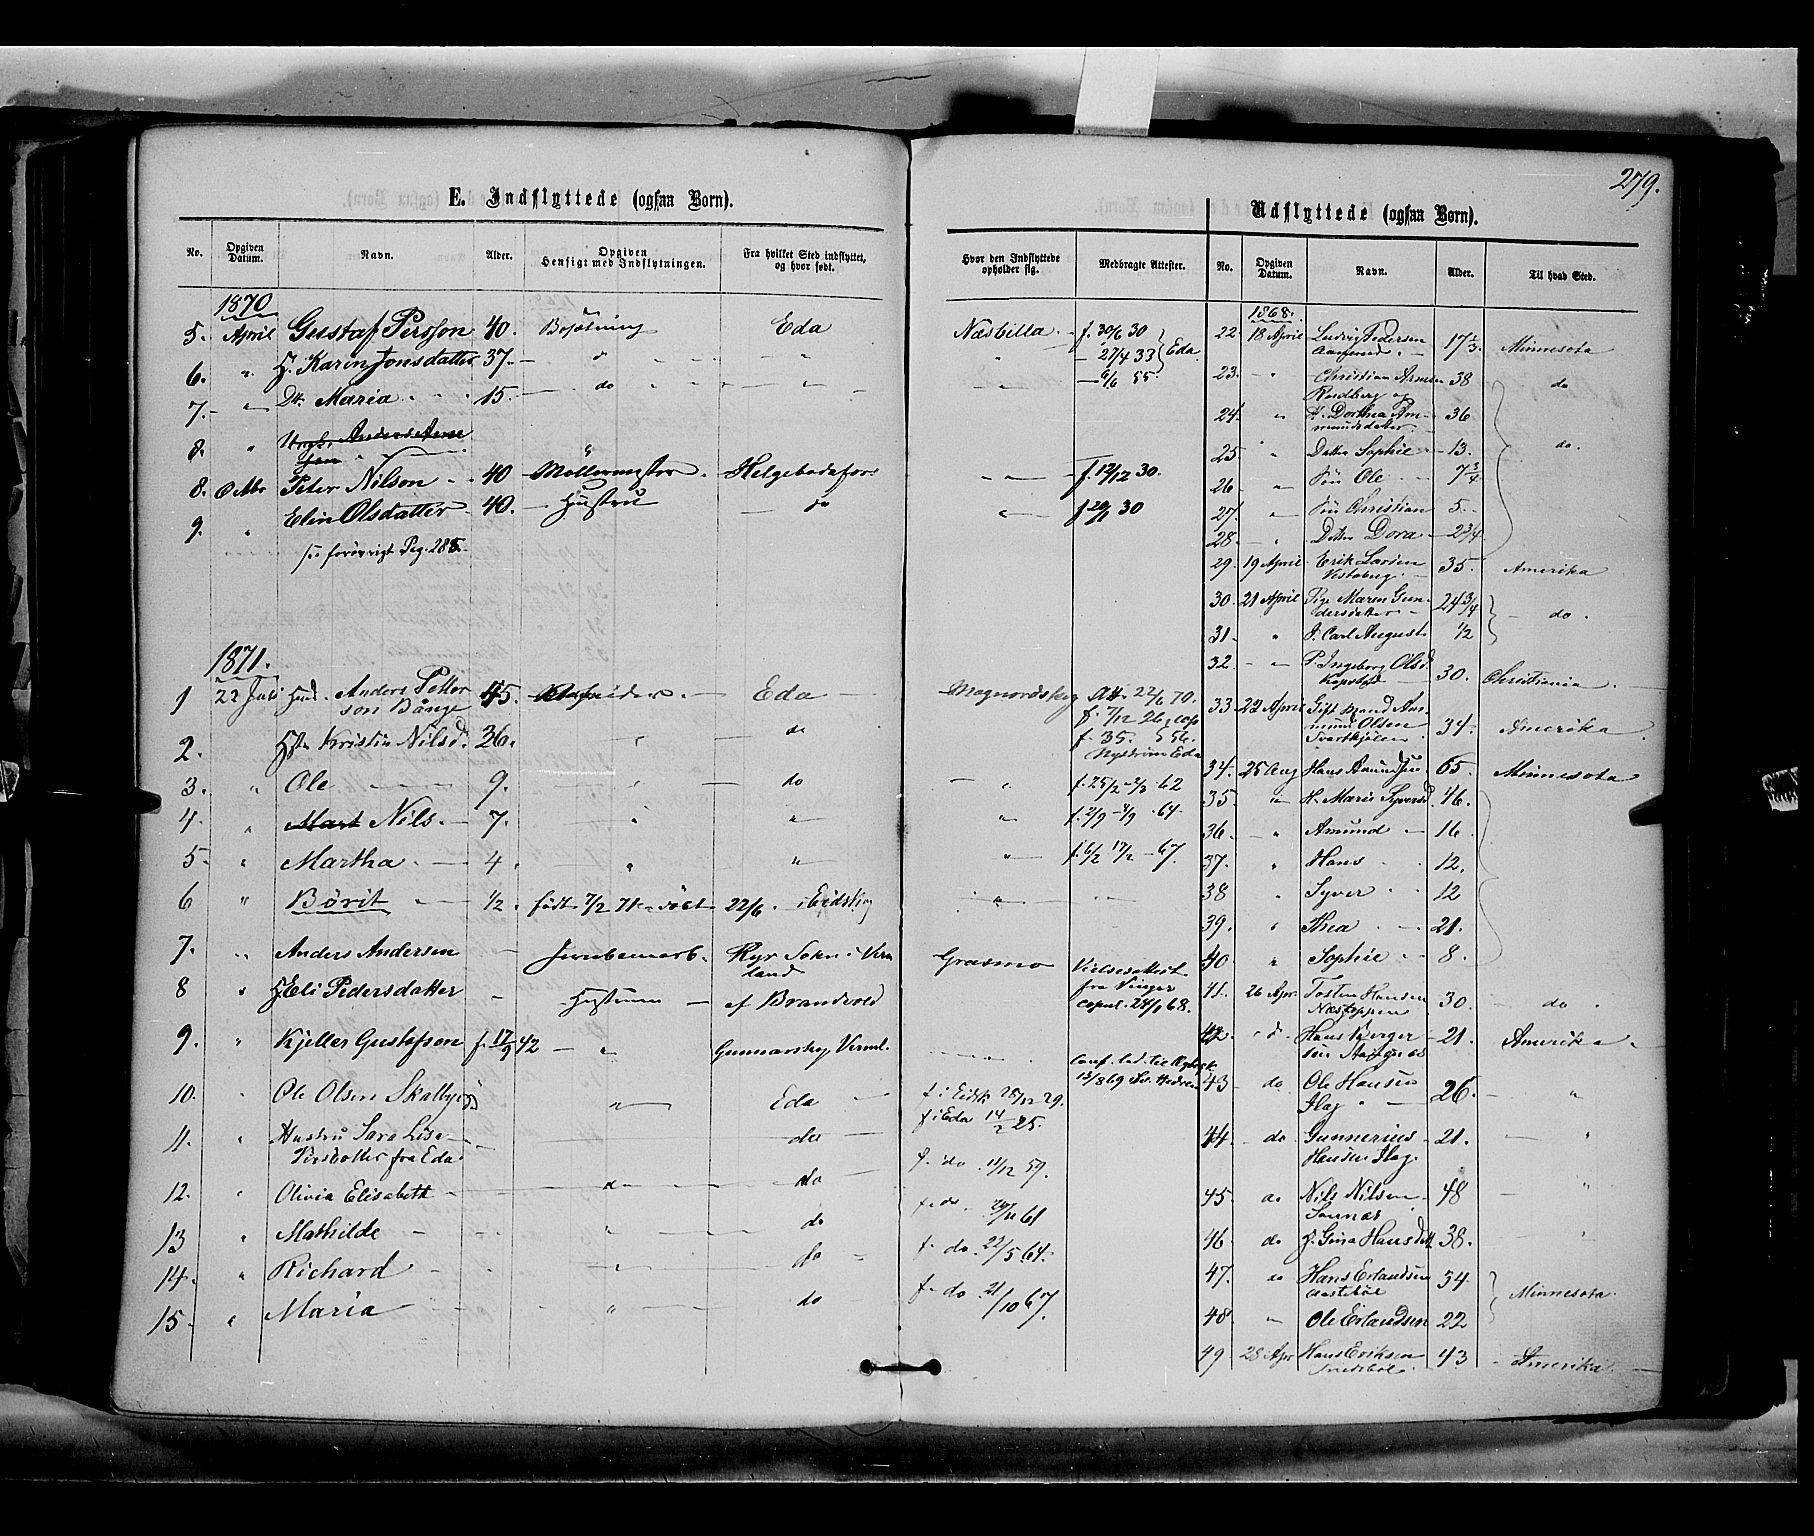 279.
E. Indflyttede (ogsaa Børn).
No. Opgiven Datum. Navn. Alder. Opgiven Hensigt med Indflytningen. Fra hvilket Sted indflyttet, og hvor født.
1870
5. April Gustaf Persson 40. Bosætning Eda
6. " H. Karin Jonsdatter 37. — " —
7. — " — Dtr. Maria 15. — do — " —
8. " Ungk. Anders Arne
sen
8. Octbr Peter Nilson 40 Møllermester Helgebodafors
9. " Elin Olsdatter 40. — Hustru — do
se forøvrigt Pag. 285.
1871.
1 22 Juli Anders Petter 45. Eda
son Bånge
2. Hstr Kristin Nilsd. 36. " do
3. " Ole 9. " do
4. " Mart Nils 7. " "
5 " Martha 4 " "
6 " Børit ½ født 7/2 71 — døbt 22/6 i Eidskog
7. " Anders Andersen — Jernbanearb. Ryr Sokn i Verm
land
8 " H Eli Pedersdatter — Hustru — af Brandvold
9. " Kjeller Gustafson f. 17/9 42 — " Gunnarskog Verml.
10. " Ole Olsen Skalbye " Eda
11. " Hustru Sara Lisa do
Persdotter fra Eda
12. " Olivia Elisabeth do
13 " Mathilde " do
14. " Richard " do
15. " Maria " do
Hvor den Indflyttede opholder sig. Medbragte Attester.
Næsbilla f. 30/6 30
" — 27/4 33 Eda
— 6/6 55
— " — f. 12/12 30.
" f 20/1 30
Magnordskog Att. 22/6 70.
f. 7/12 26 cop
f. 35. 56.
Nyström Eda
— " f. 25/2 — 2/3 62
" f. 2/9 — 4/9 64
" f. 6/2 17/2 — 67.
"
Grasmo Vielsesattest
fra Vinger
copul. 24/1 68.
f. i Eidsk 28/12 29.
f i Eda 14/2 25.
f. do 11/12 59.
f. do 61
f. do 22/5 64.
f. do 21/10 67.
Udflyttede (ogsaa Børn).
No. Opgiven Datum. Navn. Alder. Til hvad Sted.
1868.
22 18 April Ludvig Pedersen 17⅔ Minnesota
Aamund
23. " Christian Arnesen 38 do
Rudberg og
24. " H. Dorthea Am 36
mundsdatter
25 " Datter Sophie 13. do.
26 " Søn Ole 7¾
27. " Søn Christian 5
28 " Datter Dora 2¾
29. 19 April Erik Larsen 35. Amerika
Vestaberg
30. 21 April Pige Maren Gun 24¾ do.
dersdatter
31. " S. Carl August ½
32. — " P. Ingeborg Olsd. 30. Christiania
33 22 April Gift Mand Am 34. Amerika
mund Olsen
Svartkjølen
34. 25 Aug Hans Amundsen 65. Minnesota
35. " H. Marie Syversd 46.
36. " Amund 16
37. " Hans 12.
38 " Syver 12
39. " Thea 21.
40 " Sophie 8.
41. 26 Apr. Tosten Hansen 30. do
Næstoppen
42. " d. Hans Berger 21. Amerika
sen
43 do Ole Hansen 26. "
Flag
44 do Gunnerius 21. "
Hansen Flag.
45. do Nils Nilsen 48 "
46 do H. Gina Hansdtt 38. "
47. do Hans Erlandsen 34 Minnesota
48 " Ole Erlandsen 22
49 28 Apr Hans Eriksen 43 Amerika